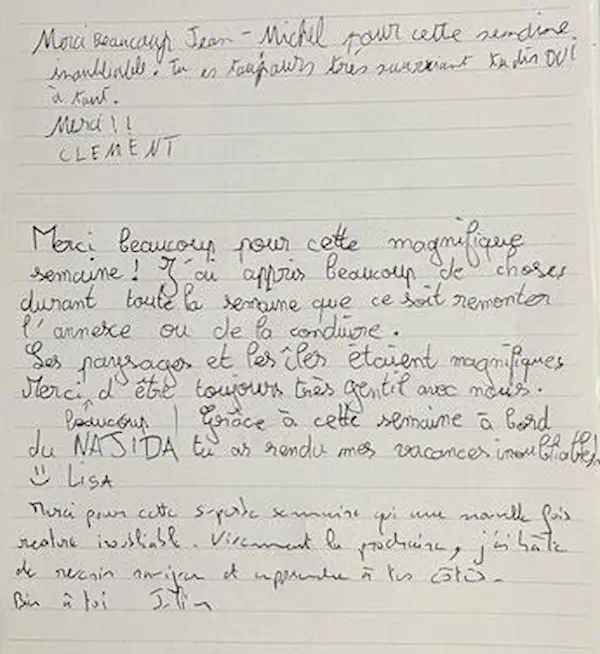 Merci Beaucoup Jean-Michel pour cette semaine
inoubliable. Tu es toujours très souriant tu dis OUI
à tout.
Merci !!
CLEMENT
Merci beaucoup pour cette magnifique
semaine ! J'ai appris beaucoup de choses
durant toute la semaine que ce soit remonter
l'annexe ou de la conduire.
Les paysages et les îles étaient magnifiques
Merci d'être toujours très gentil avec nous.
beaucoup ! Grâce à cette semaine à bord
du NAJIDA tu as rendu mes vacances inoubliables
LISA
Merci pour cette superbe semaine qui une nouvelle fois
restera inoubliable. Vivement la prochaine, j'ai hâte
de revenir naviguer et apprendre à tes côtés.
Bien à toi